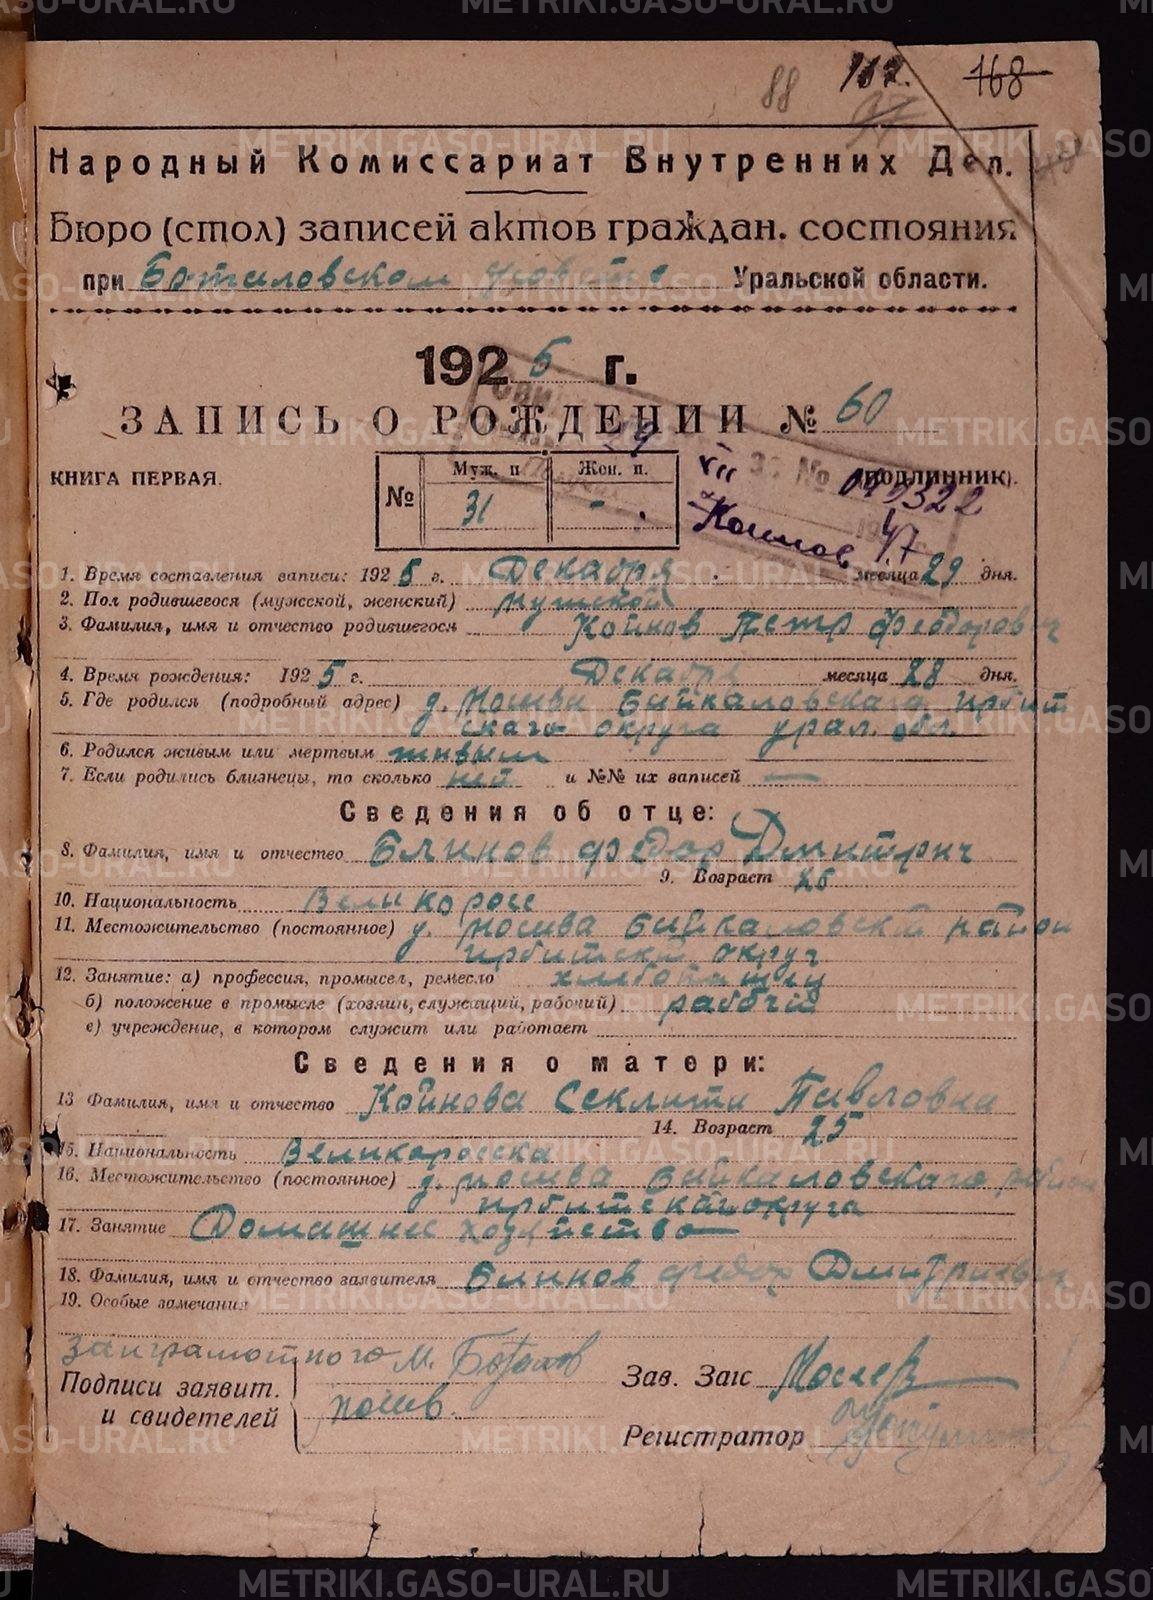 88 112. 168
97
Народный Комиссариат Внутренних Дел.
Бюро (стол) записей актов граждан. состояния
при Уральской области.
1925 г.
ЗАПИСЬ О РОЖДЕНИИ № 60
КНИГА ПЕРВАЯ. (подлинник).
№ Муж. п Жен. п.
31 -
VII № 049322
47
1. Время составления записи: 1925 г. Декабря месяца 29 дня.
2. Пол родившегося (мужсской, женский) мужской
3. Фамилия, имя и отчество родившегося Койнов Петр Феодорович
4. Время рождения: 1925 г. Декабря месяца 28 дня.
5. Где родился (подробный адрес) д. Байкаловскаго Ирбит
скаго округа урал. обл.
6. Родился живым или мертвым живым
7. Если родились близнецы, то сколько ней и №№ их записей —
Сведения об отце:
8. Фамилия, имя и отчество Блинов Федор Дмитрич
9. Возраст 26
10. Национальность Великоросс
11. Местожительство (постоянное) д. Байкаловский район
ирбитский округ
12. Занятие: а) профессия, промысел, ремесло хлебопашец
б) положение в промысле (хозяин, служащий, рабочий) рабочий
в) учреждение, в котором служит или работает
Сведения о матери:
13 Фамилия, имя и отчество Койнова Секлити Павловна
14. Возраст 25
15. Национальность Великоросска
16. Местожительство (постоянное) д. Байкаловскаго район
ирбитскаго округа
17. Занятие Домашнее хозяйство
18. Фамилия, имя и отчество заявителя Блинов Федор Дмитриевич
19. Особые замечания
за неграмотного М.
Подписи заявит.
и свидетелей
Зав. Загс
Регистратор
METRIKI.GASO-URAL.RU